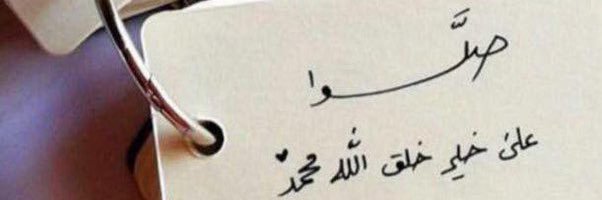 صلَّوا
على خير خلق الله محمد